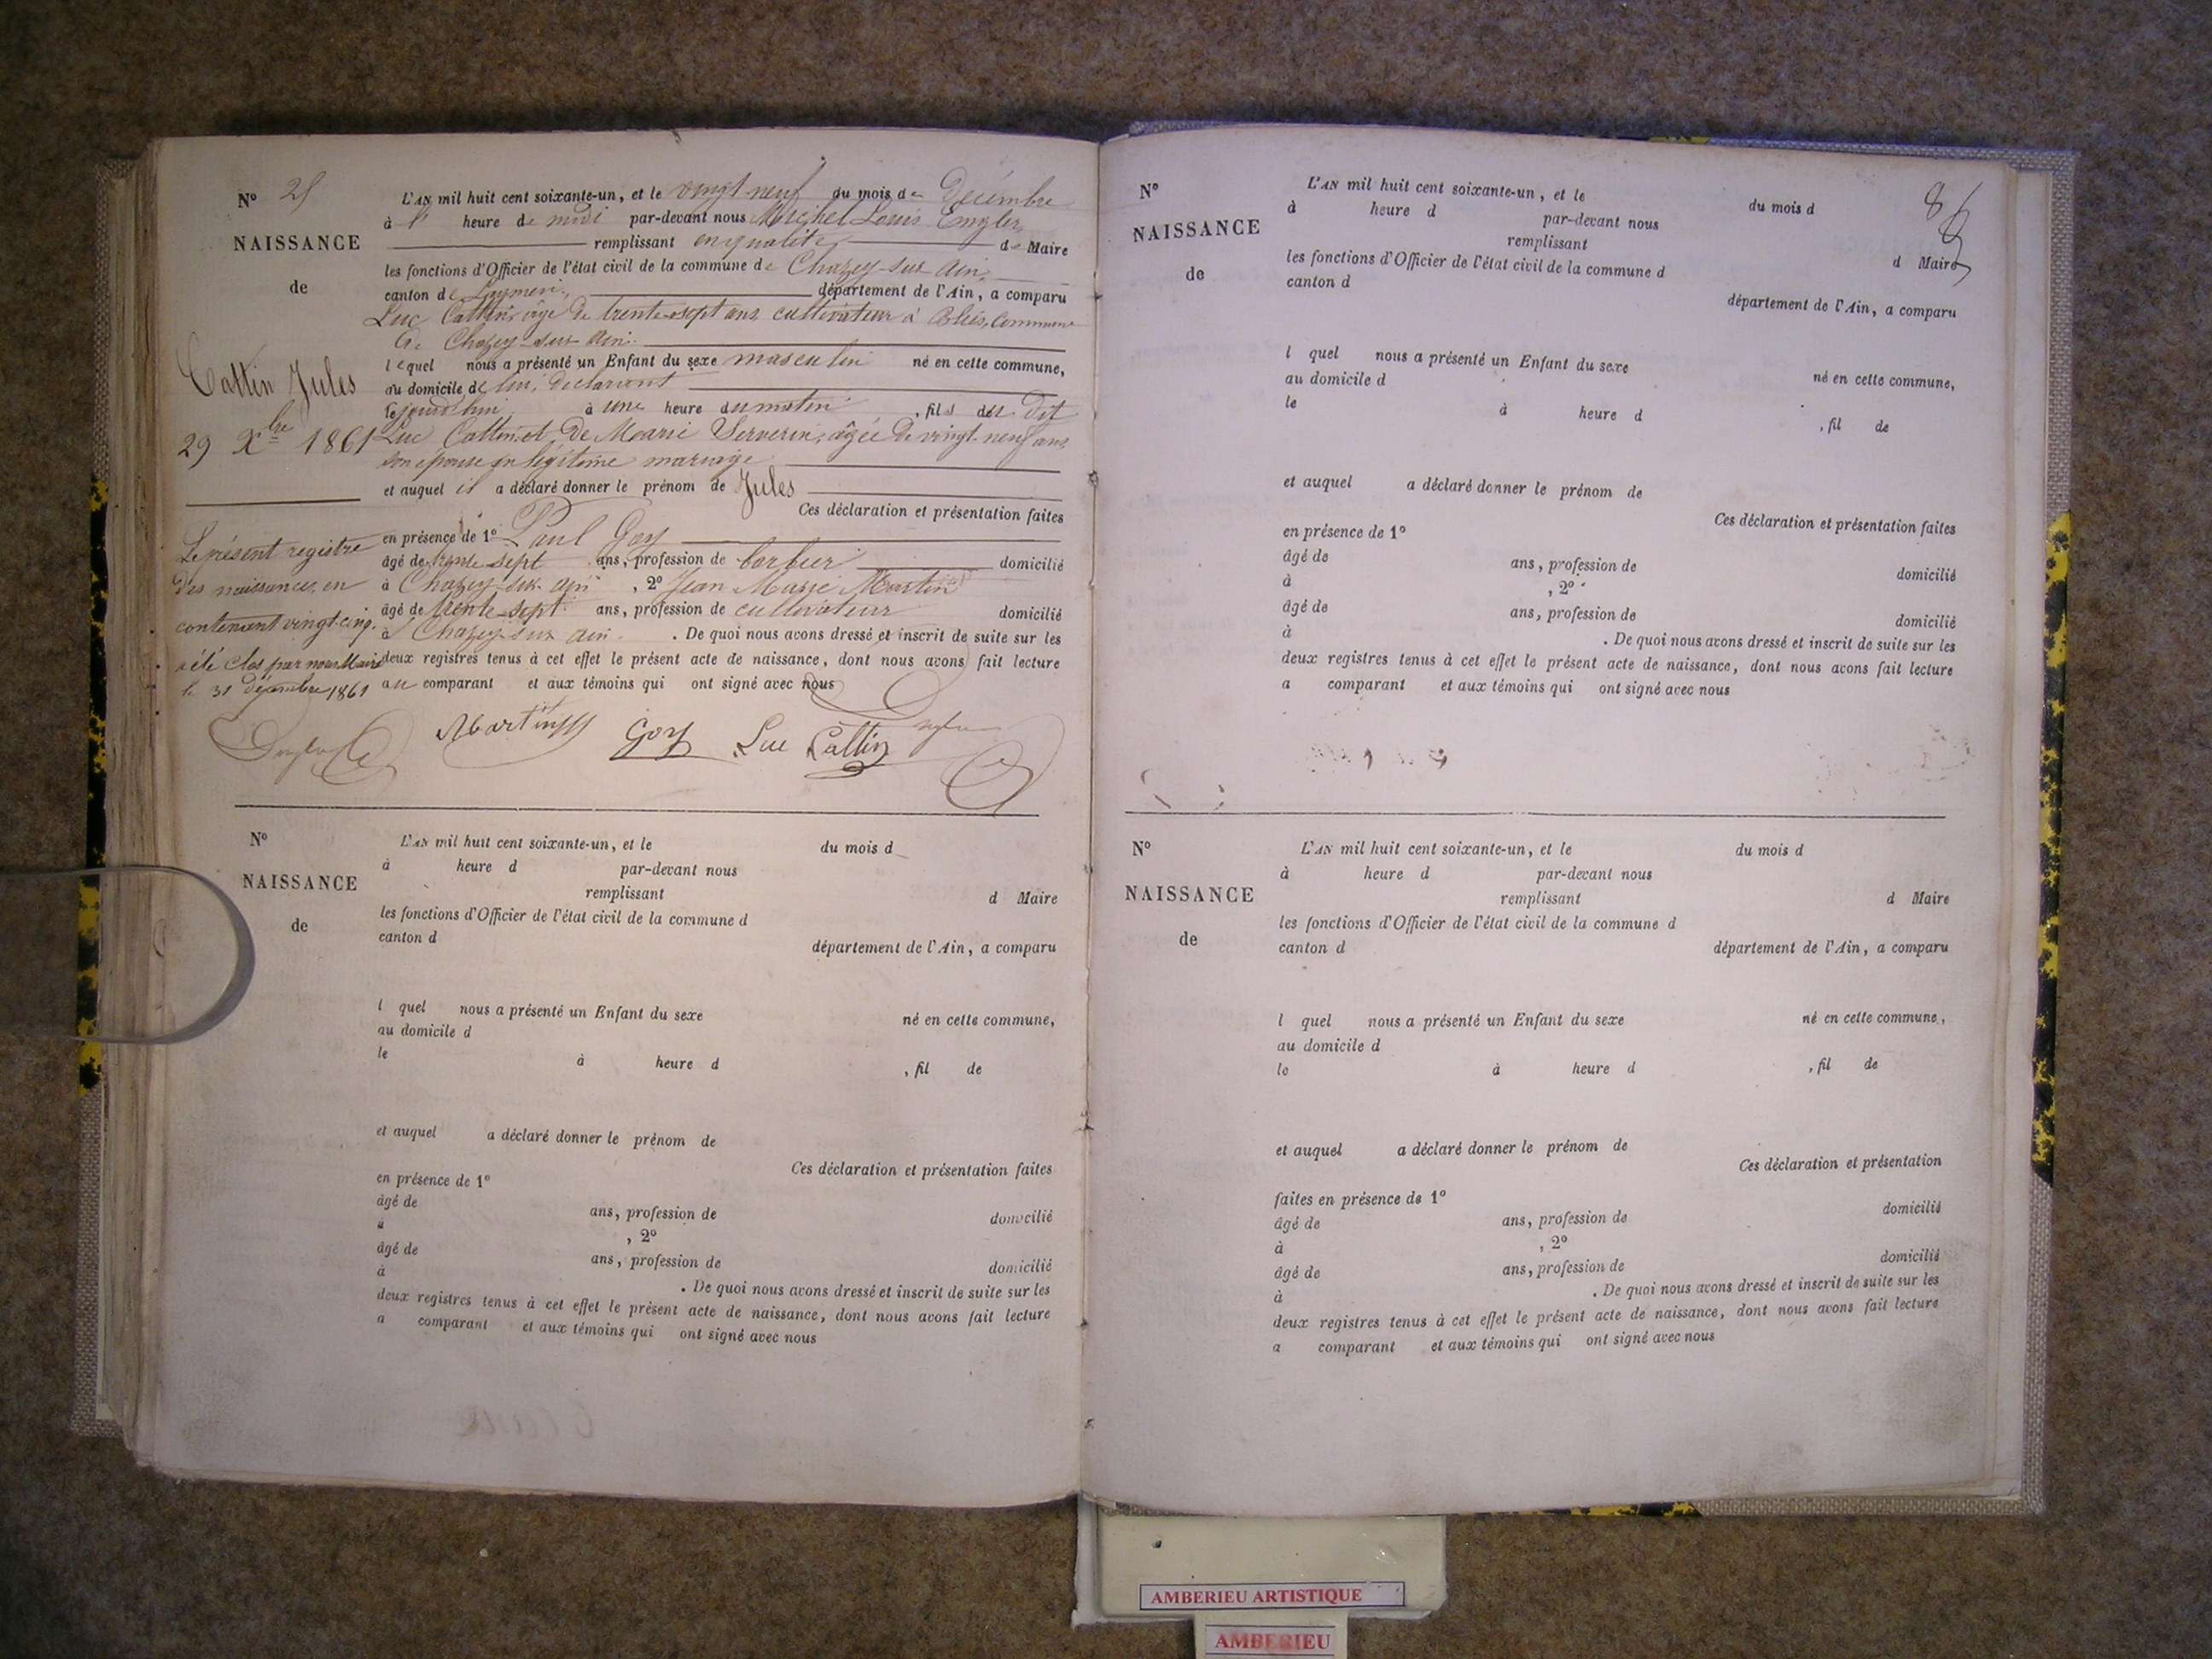 N° 25
NAISSANCE
de
Cattin Jules
29 Xbre 1861
Le présent registre
des naissances, en
contenant vingt-cinq
a été clos par nous Maire
le 31 décembre 1861
L'AN mil huit cent soixante-un, et le vingt neuf du mois de Décembre
à heure de midi par-devant nous Michel Louis Engler
remplissant en qualité de Maire
les fonctions d'Officier de l'état civil de la commune de Chazey-sur-Ain
canton de département de l'Ain, a comparu
Luc Cattin, âgé de trente-sept ans, cultivateur à Blies, Commune
de Chazey-sur-Ain
lequel nous a présenté un Enfant du sexe masculin né en cette commune,
au domicile de lui, déclarant
le jourd'hui à une heure du matin, fils du dit
Luc Cattin et de Marie Serverin, âgée de vingt-neuf ans,
son épouse en légitime mariage
et auquel il a déclaré donner le prénom de Jules
Ces déclaration et présentation faites
en présence de 1° Paul Goy
âgé de trente sept ans, profession de domicilié
à Chazey-sur-Ain, 2° Jean Marie Martin
âgé de trente-sept ans, profession de cultivateur domicilié
à Chazey-sur-Ain. De quoi nous avons dressé et inscrit de suite sur les
deux registres tenus à cet effet le présent acte de naissance, dont nous avons fait lecture
au comparant et aux témoins qui ont signé avec nous
Martin Goy Luc Cattin
N°
NAISSANCE
de
L'AN mil huit cent soixante-un, et le du mois d
à heure d par-devant nous
remplissant d Maire
les fonctions d'Officier de l'état civil de la commune d
canton d département de l'Ain, a comparu
l quel nous a présenté un Enfant du sexe né en cette commune,
au domicile d
le à heure d , fil de
et auquel a déclaré donner le prénom de
Ces déclaration et présentation faites
en présence de 1°
âgé de ans, profession de domicilié
à , 2°
âgé de ans, profession de domicilié
à . De quoi nous avons dressé et inscrit de suite sur les
deux registres tenus à cet effet le présent acte de naissance, dont nous avons fait lecture
a comparant et aux témoins qui ont signé avec nous
N°
NAISSANCE
de
L'AN mil huit cent soixante-un, et le du mois d
à heure d par-devant nous
remplissant d Maire
les fonctions d'Officier de l'état civil de la commune d
canton d département de l'Ain, a comparu
l quel nous a présenté un Enfant du sexe né en cette commune,
au domicile d
le à heure d , fil de
et auquel a déclaré donner le prénom de
Ces déclaration et présentation faites
en présence de 1°
âgé de ans, profession de domicilié
à , 2°
âgé de ans, profession de domicilié
à . De quoi nous avons dressé et inscrit de suite sur les
deux registres tenus à cet effet le présent acte de naissance, dont nous avons fait lecture
a comparant et aux témoins qui ont signé avec nous
N°
NAISSANCE
de
L'AN mil huit cent soixante-un, et le du mois d
à heure d par-devant nous
remplissant d Maire
les fonctions d'Officier de l'état civil de la commune d
canton d département de l'Ain, a comparu
l quel nous a présenté un Enfant du sexe né en cette commune,
au domicile d
le à heure d , fil de
et auquel a déclaré donner le prénom de
Ces déclaration et présentation
faites en présence de 1°
âgé de ans, profession de domicilié
à , 2°
âgé de ans, profession de domicilié
à . De quoi nous avons dressé et inscrit de suite sur les
deux registres tenus à cet effet le présent acte de naissance, dont nous avons fait lecture
a comparant et aux témoins qui ont signé avec nous
AMBERIEU ARTISTIQUE
AMBERIEU